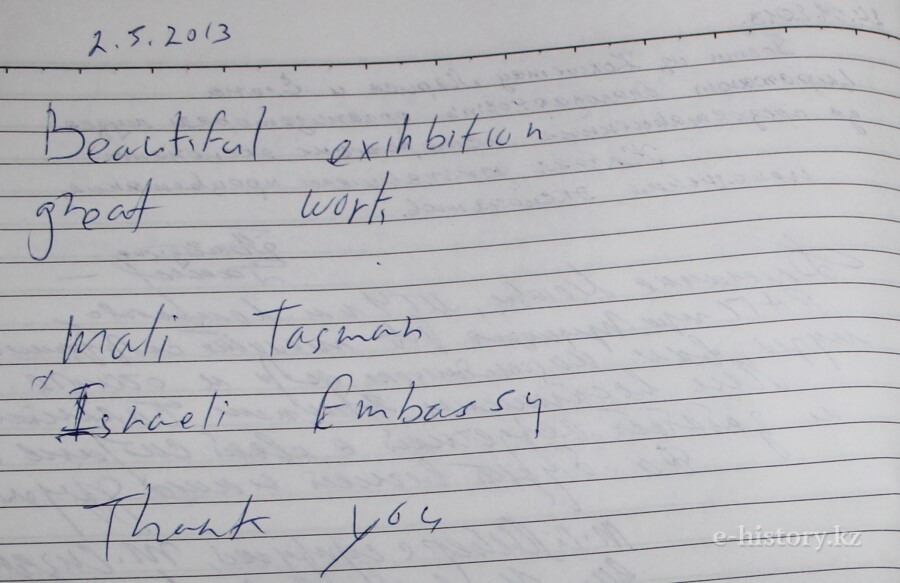 2.5.2013
Beautiful exihbition
great work
Mali Tasman
Israeli Embassy
Thank you
e-history.kz